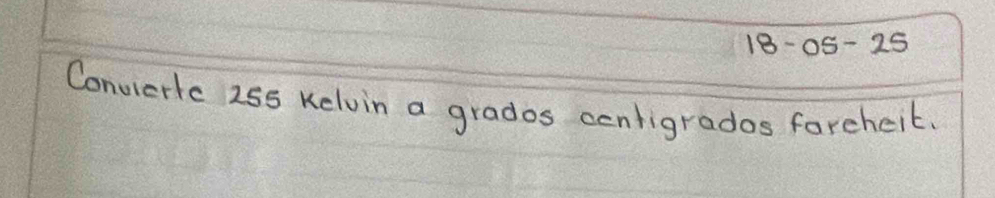 18-05-25
Convierte 255 Kelvin a grados centigrados farenheit.